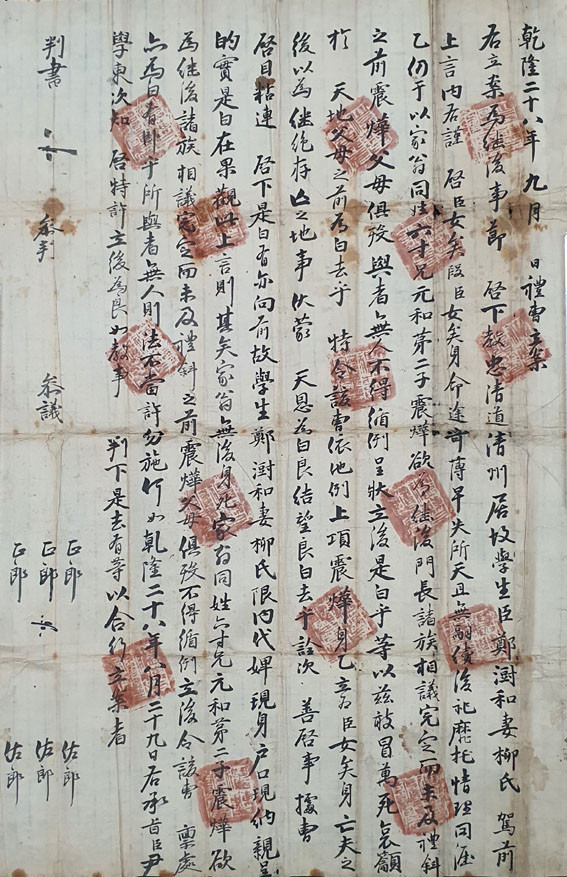 乾隆二十八年 九月 日禮曹立案
右立案爲継後事節 啓下敎忠清道清州居故學生臣鄭澍和妻柳氏 駕前
上言內右謹 啓臣女矣段臣女矣身命途奇薄早失所天且無嗣續後祀靡托情理同涯
乙仍于以家翁同姓六寸兄元和第二子震燁欲爲继後門長諸族相議完定而未及禮斜
之前震燁父母俱歿與者無人不得循例呈狀立後是白乎等以玆敢冒萬死哀籲
於 天地父母之前爲白去乎 特令該曹依他例上項震燁身乙立爲臣女矣身亡夫之
後以爲继絶存亡之地事伏蒙 天恩爲白良結望良白去乎詮次 善啓事據曹
啓目粘連 啓下是白有亦向前故學生鄭澍和妻柳氏限內代婢現身戶口現納親呈
的實是白在果觀此上言則其矣家翁無後身死家翁同姓六寸兄元和第二子震燁欲
爲继後諸族相議完定而未及禮斜之前震燁父母俱歿不得循例立後令該曹 稟處
亦爲白有卧乎所與者無人則法不當許勿施何如乾隆二十八年八月二十九日右承旨臣尹
學東次知 啓特許立後爲良如敎事 判下是去有等以合行立案者
判書 參判 參議 正郎 正郎 正郎 佐郎 佐郎 佐郎